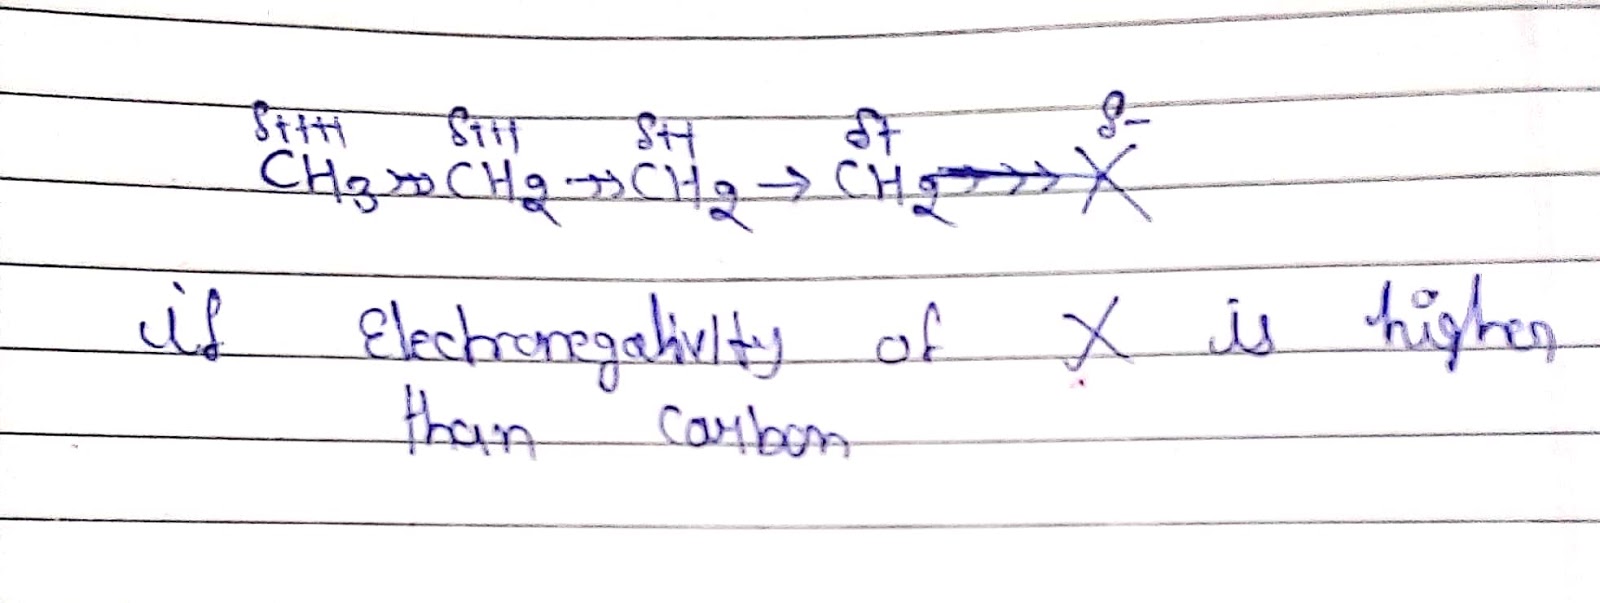 δ++++ δ+++ δ++ δ+ δ-
CH3->>>CH2->>CH2->CH2->>>>X
if Electronegativity of X is higher
than carbon